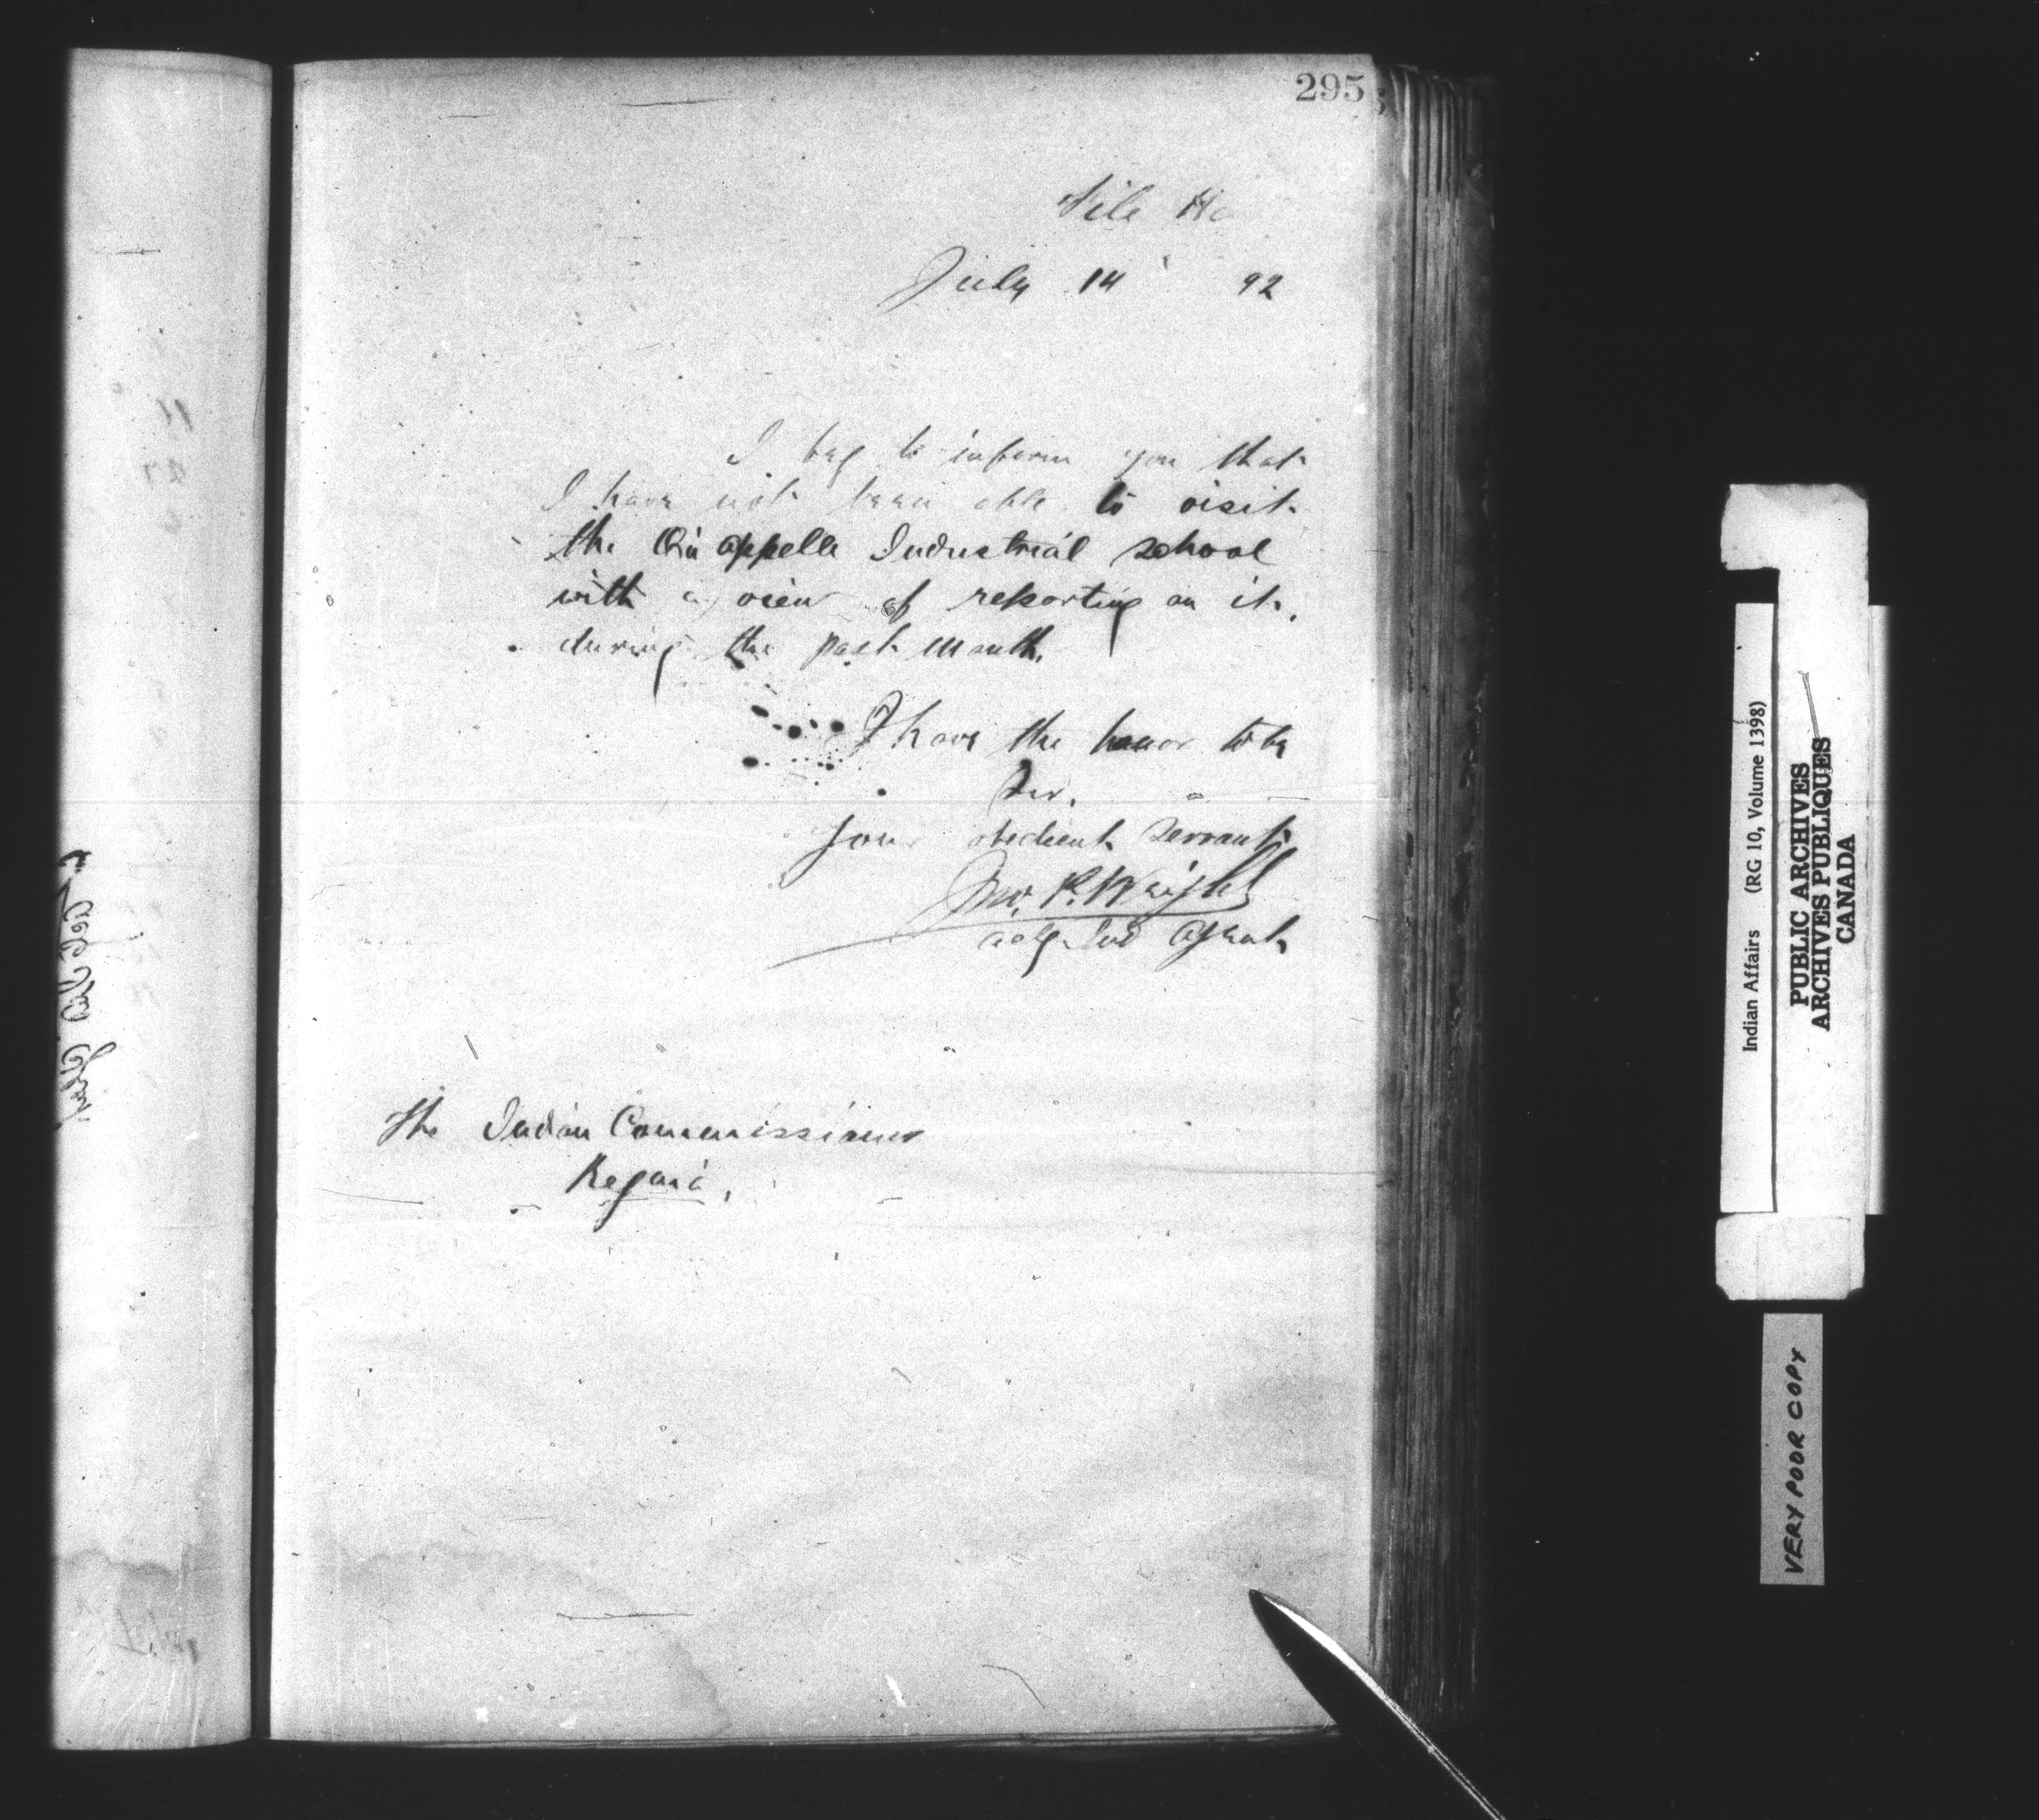 295
File H
July 14 92
I beg to inform you that
I have not been able to visit
the Qu'appelle Industrial school
with a view of reporting on it,
during the past month.
I have the honor to be
Sir,
Your obedient servant
Jno. P. Wright
actg. Ind Agent
The Indian Commissioner
Regina,
Indian Affairs (RG 10, Volume 1398)
PUBLIC ARCHIVES
ARCHIVES PUBLIQUES
CANADA
VERY POOR COPY